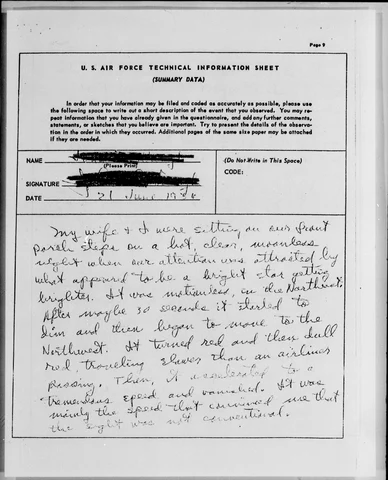 Page 9
U. S. AIR FORCE TECHNICAL INFORMATION SHEET
(SUMMARY DATA)
In order that your information may be filed and coded as accurately as possible, please use
the following space to write out a short description of the event that you observed. You may re-
peat information that you have already given in the questionnaire, and add any further comments,
statements, or sketches that you believe are important. Try to present the details of the observa-
tion in the order in which they occurred. Additional pages of the same size paper may be attached
if they are needed.
NAME
(Please Print)
SIGNATURE
DATE 21 June
(Do Not Write in This Space)
CODE:
My wife & I were sitting on our front
porch steps on a hot, clear, moonless
night when our attention was attracted by
what appeared to be a bright star getting
brighter. It was motionless, in the Northwest.
After maybe 30 seconds it started to
dim and then began to move to the
Northwest. It turned red and then dull
red, traveling slower than an airliner
passing. Then, it accelerated to a
tremendous speed and vanished. It was
mainly the speed that convinced me that
the sight was not conventional.